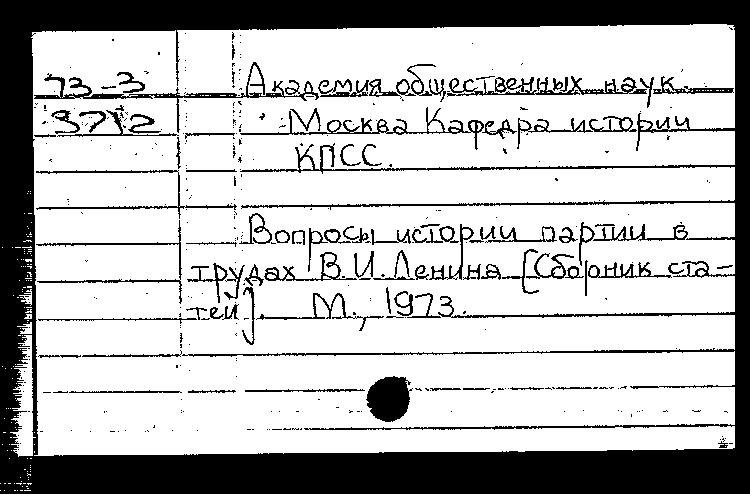 73-3 Академия общественных наук.
3712 Москва Кафедра истории
КПСС.
Вопросы истории партии в
трудах В.И. Ленина [Сборник ста-
тей]. М., 1973.